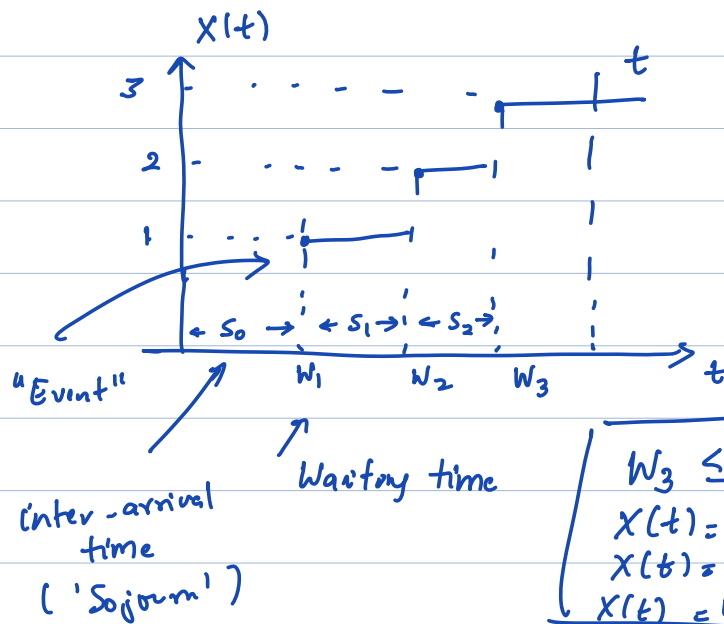 X(t)
3
t
2
1
S₀
S₁
S₂
"Event"
W₁
W₂
W₃
t
Waiting time
inter-arrival
time
('Sojourn')
W₃ ≤
X(t) =
X(t) =
X(t) =